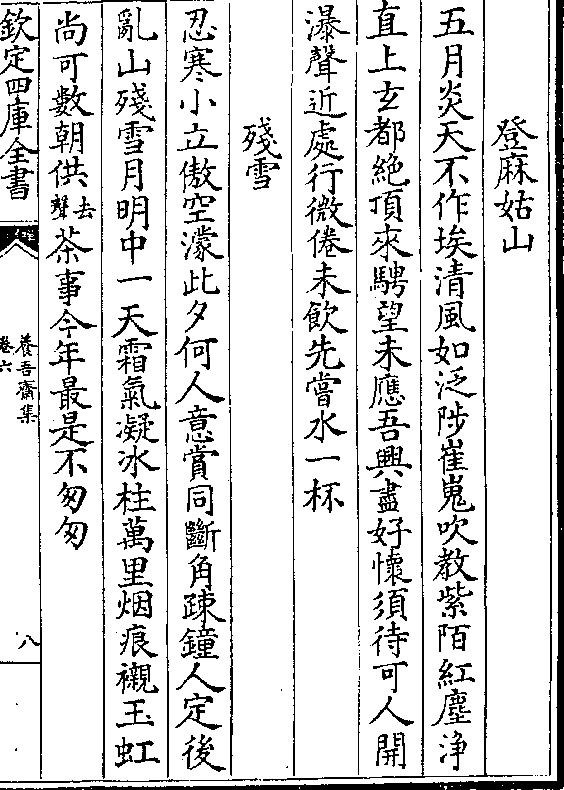 登麻姑山
五月炎天不作埃清風如泛陟崔嵬吹教紫陌紅塵浄
直上玄都絶頂來騁望未應吾興盡好懷須待可人開
瀑聲近處行微倦未飲先嘗水一杯
殘雪
忍寒小立傲空濛此夕何人意賞同斷角疎鐘人定後
亂山殘雪月明中一天霜氣凝冰柱萬里烟痕襯玉虹
尚可數朝供去聲茶事今年最是不匆匆
欽定四庫全書
養吾齋集
卷六
八